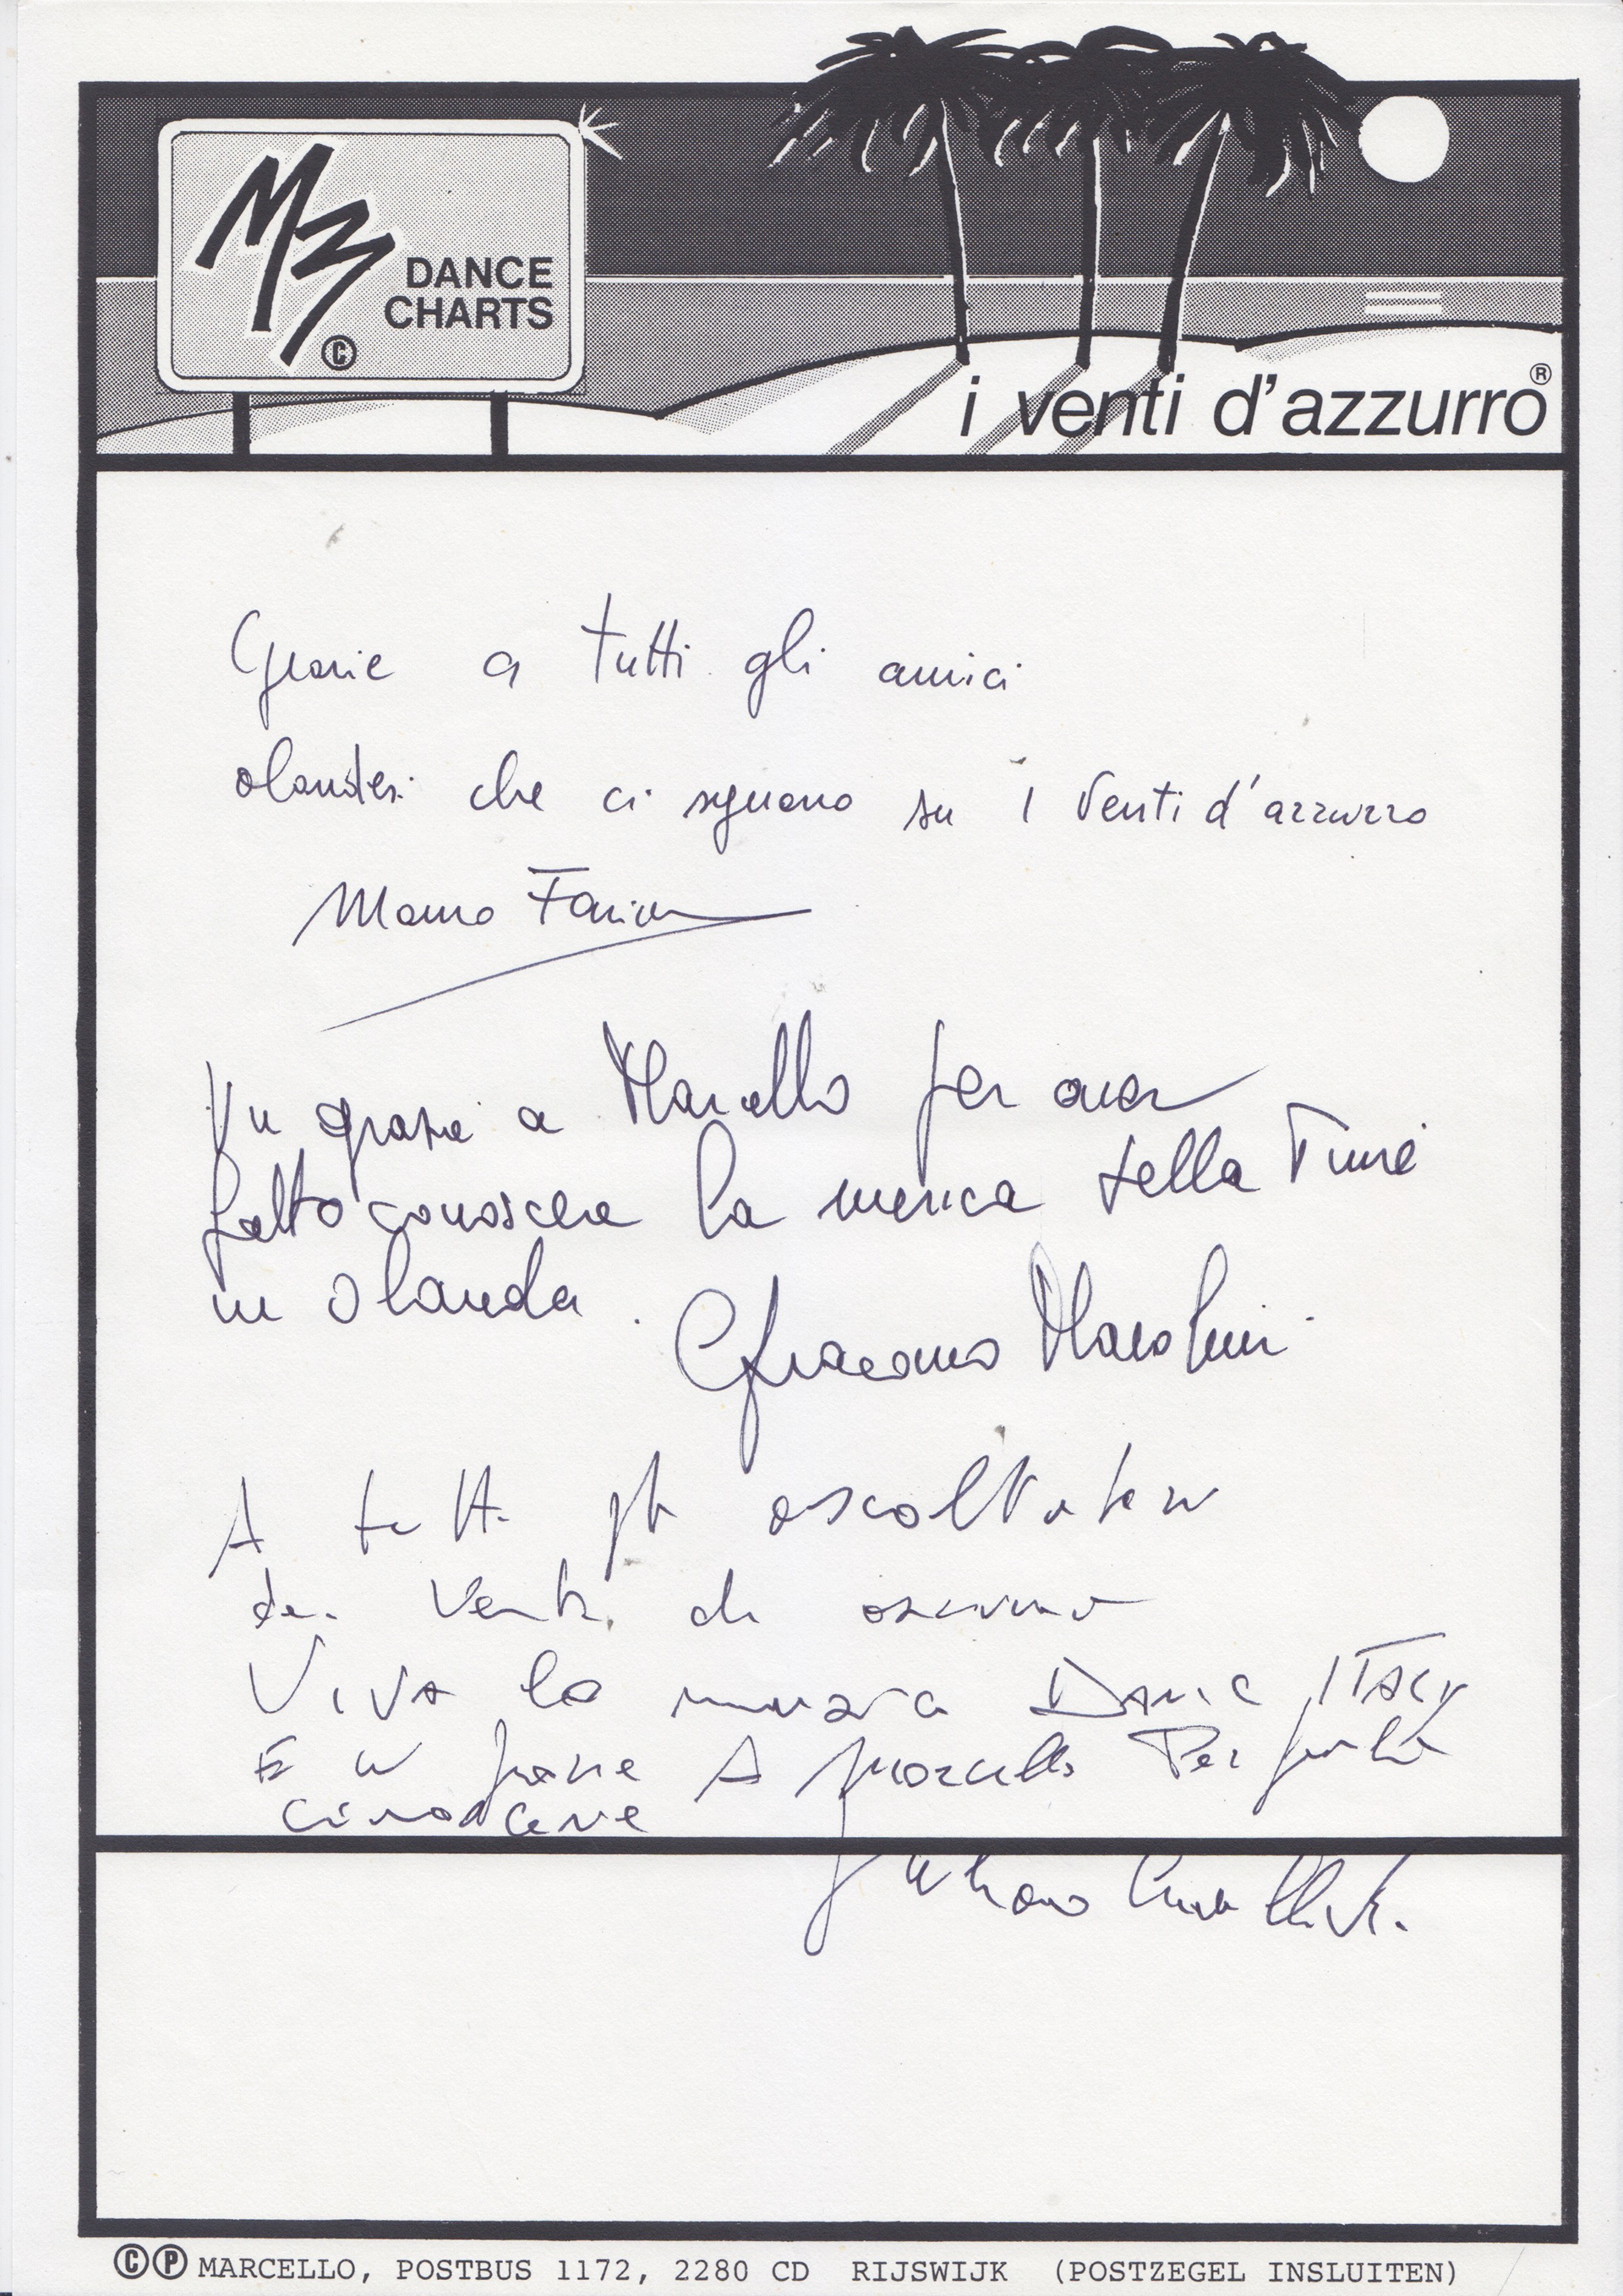 M3
DANCE
CHARTS
©
i venti d'azzurro®
Grazie a tutti gli amici
olandesi che ci seguono su I Venti d'azzurro
Mauro Farina
Un grazie a Marcello per aver
fatto conoscere la musica della Time
in Olanda.
Giacomo Maiolini
A tutti gli ascoltatori
dei Venti di azzurro
Viva la musica Dance ITALY
E un grazie A Marcello Per
Giuliano Crivellente
©℗ MARCELLO, POSTBUS 1172, 2280 CD RIJSWIJK (POSTZEGEL INSLUITEN)